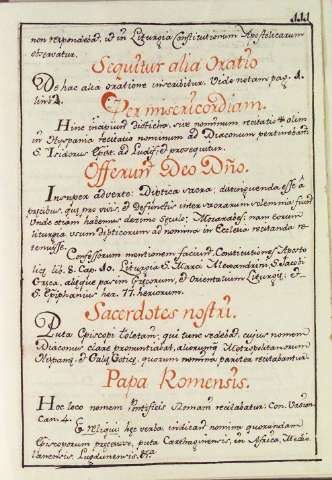 111
non respondebat, ut in Liturgia Constitutionum Apostolicarum
observatur.
Sequitur alia Oratio
De hac alia oratione inscribitur. Vide notam pag. 1.
lin. 2.
Per misericordiam.
Hinc incipiunt disticha, sive nominum recitatio. Et olim
in Hyspania recitatio nominum ad Diaconum pertinebat
S. Isidorus Epist. ad Ludif. et prosequitur.
Offerunt Deo Dño.
Insuper adverte: Diptica sacra, distinguenda esse â
precibus, quæ pro vivis, et Defunctis inter sacrorum solemnia fiunt
Unde etiam habemus decimo seculo, Mozarabes. nam eorum
liturgia usum Dipticorum ad nomina in Ecclesia recitanda re-
tenuisse.
Confessorum mentionem faciunt Constitutiones Aposto
licæ lib. 8. Cap. 40. Liturgia S. Marci Alexandrini, S. Jacobi
Græca, aliæque passim Græcorum, et Orientalium Liturgiæ; Et
S. Epiphanius her. 77. heriorum.
Sacerdotes nostri.
Puta Episcopi Toletani, qui tunc sedebat, cujus nomen
Diaconus clare pronuntiabat, aliorumq. Metropolitanorum
Hispaniæ, et Galiæ Goticæ, quorum nomina pariter recitabantur.
Papa Romensis.
Hoc loco nomen Pontificis Romani recitabatur. Con. Vasion
Can. 4.
Et Reliqui hæc verba indicant nomina quorundam
Episcoporum præcipue, puta Carthaginensis, in Africa, Medio
lanensis, Lugdunensis, &a.